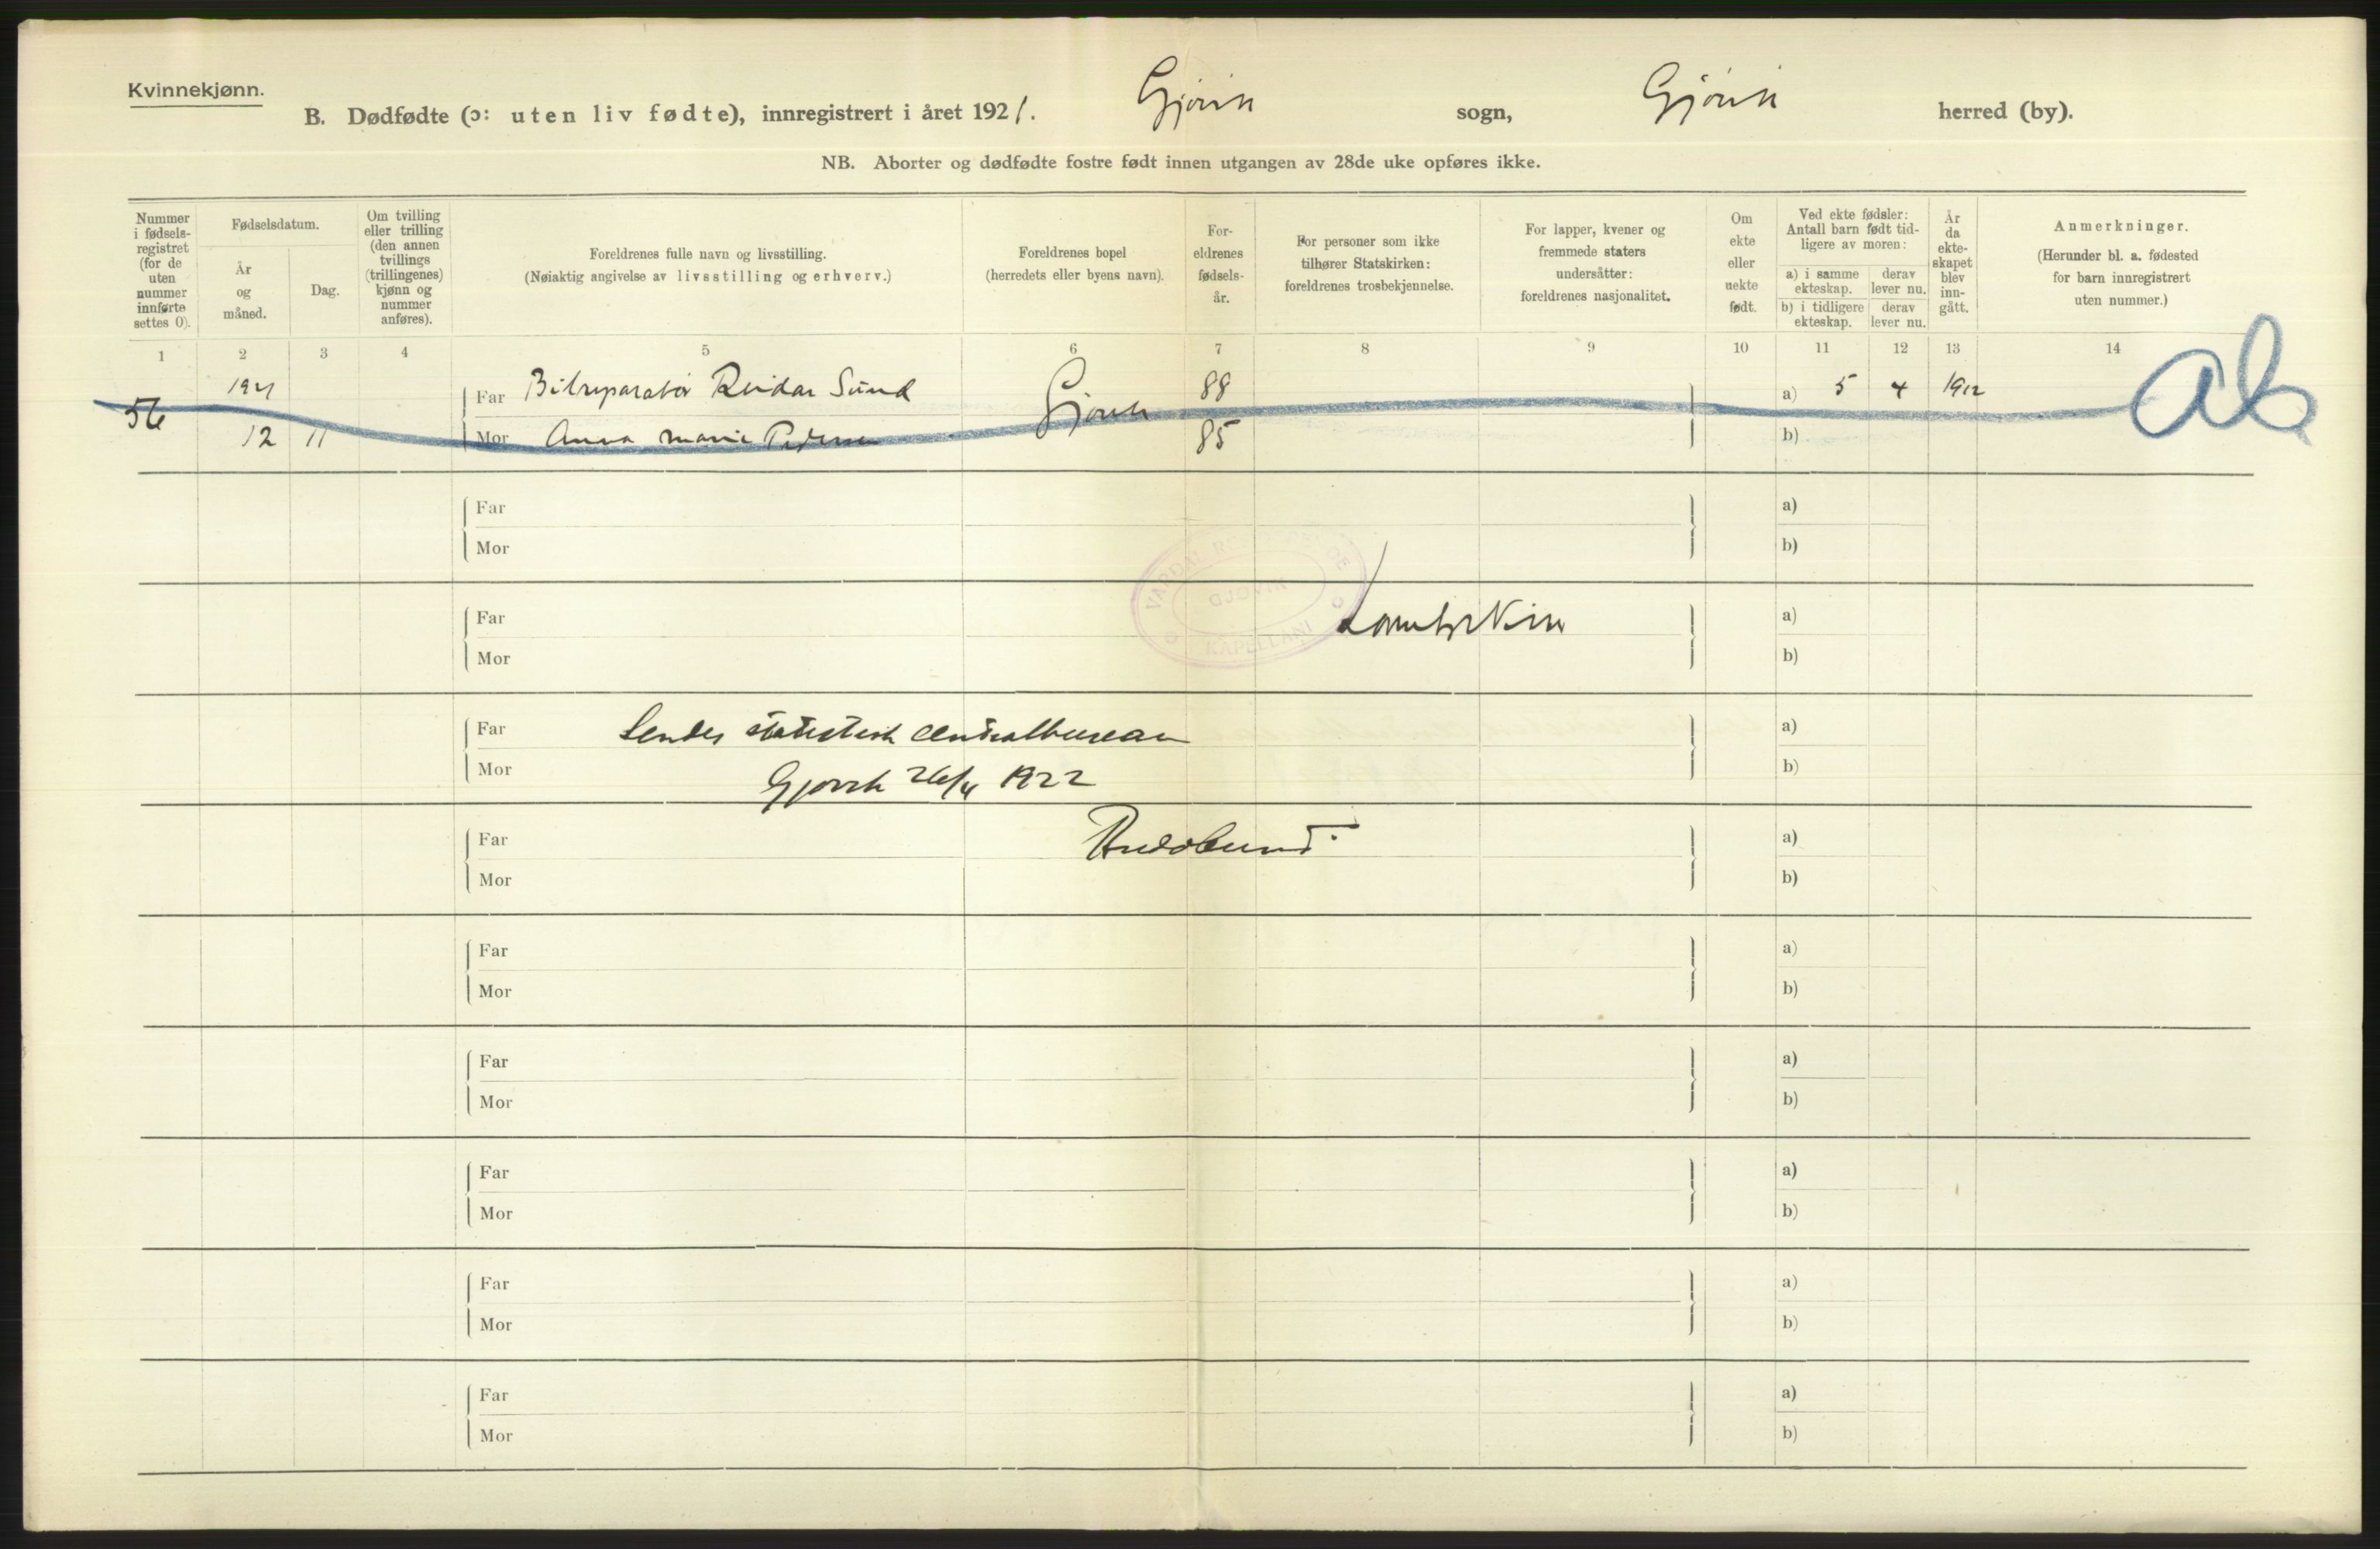 Kvinnekjønn.
B. Dødfødte (ɔ: uten liv fødte), innregistrert i året 1921. Gjøvik sogn, Gjøvik herred (by).
NB. Aborter og dødfødte fostre født innen utgangen av 28de uke opføres ikke.
Nummer i fødsels-registret (for de uten nummer innførte settes 0).
Fødselsdatum.
År og måned.
Dag.
Om tvilling eller trilling (den annen tvillings (trillingenes) kjønn og nummer anføres).
Foreldrenes fulle navn og livsstilling.
(Nøiaktig angivelse av livsstilling og erhverv.)
Foreldrenes bopel
(herredets eller byens navn).
For-eldrenes fødsels-år.
For personer som ikke tilhører Statskirken: foreldrenes trosbekjennelse.
For lapper, kvener og fremmede staters undersåtter: foreldrenes nasjonalitet.
Om ekte eller uekte født.
Ved ekte fødsler: Antall barn født tid-ligere av moren:
a) i samme ekteskap.
derav lever nu.
b) i tidligere ekteskap.
derav lever nu.
År da ekte-skapet blev inn-gått.
Anmerkninger.
(Herunder bl. a. fødested for barn innregistrert uten nummer.)
1 2 3 4 5 6 7 8 9 10 11 12 13 14
1921 Far Bilreparatør Reidar Sund 88 a) 5 4 1912
56 12 11 Mor Anna Marie Pedersen Gjøvik 85 b)
Ab
Far a)
Mor b)
VARDAL RESIDERENDE
GJØVIK
KAPELLANI
Far a)
Mor b)
Far Sendes statistisk centralbureau a)
Mor Gjøvik 26/4 1922 b)
Far a)
Mor b)
Far a)
Mor b)
Far a)
Mor b)
Far a)
Mor b)
Far a)
Mor b)
Far a)
Mor b)